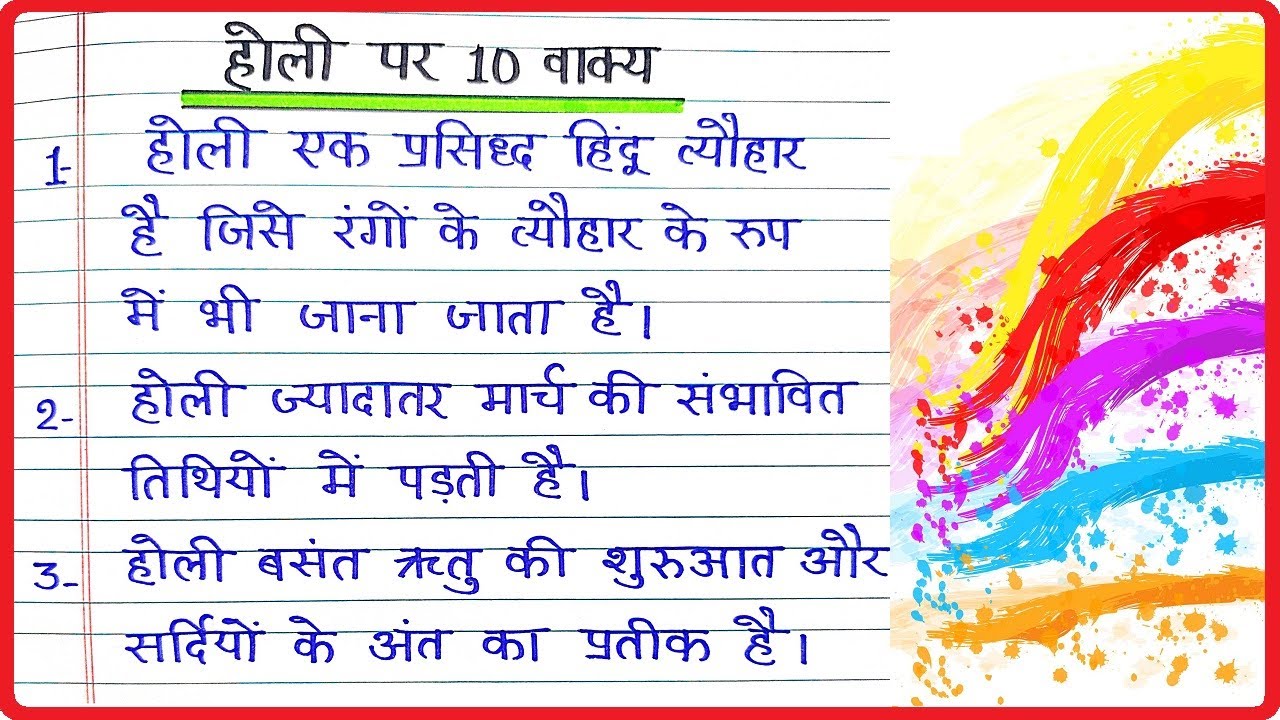 होली पर 10 वाक्य
1- होली एक प्रसिध्द हिंदू त्यौहार
है जिसे रंगों के त्यौहार के रुप
में भी जाना जाता है।
2- होली ज्यादातर मार्च की संभावित
तिथियों में पड़ती है।
3- होली बसंत ऋतु की शुरुआत और
सर्दियों के अंत का प्रतीक है।